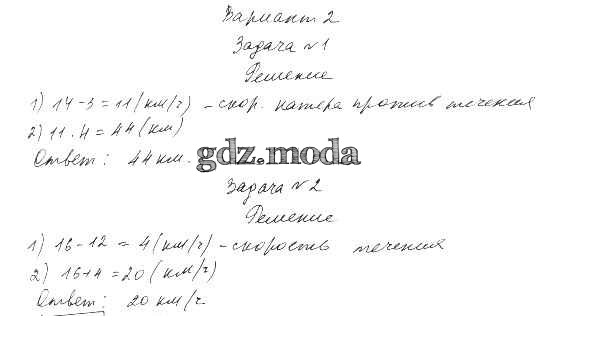 Вариант 2
Задача №1
Решение
1) 14-3=11(км/ч) - скор. катера против течения
2) 11·4=44(км)
Ответ: 44 км.
gdz.moda
Задача №2
Решение
1) 16-12 = 4(км/ч) - скорость течения
2) 16+4=20(км/ч)
Ответ: 20 км/ч.